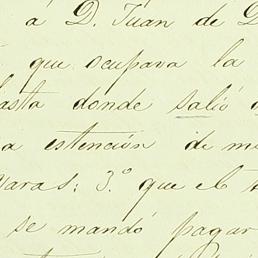 á D. Juan de D
que ocupava la
hasta donde salió
a estención de m
varas: 3.º que el
se mandó pagar